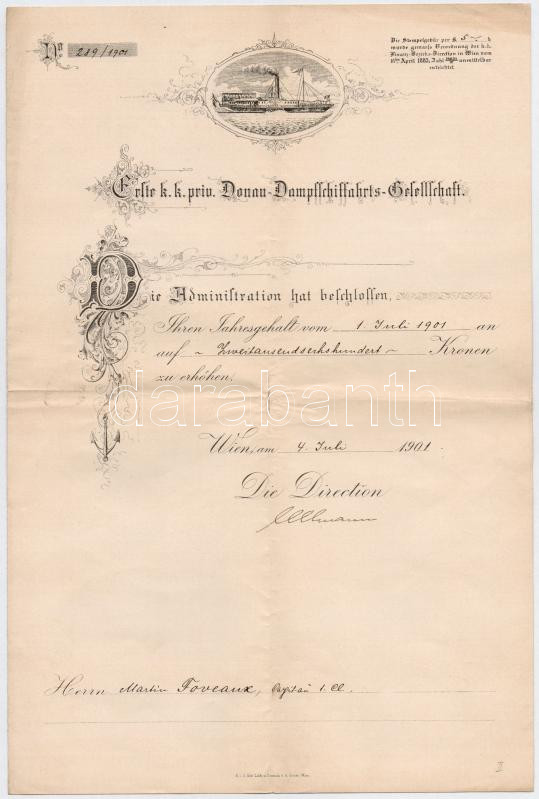 No 289/1901
Die Stempelgebür per K 5 h
wurde gemäss Verordnung der k.k.
Finanz-Bezirks-Direction in Wien vom
16ten April 1883, Zahl unmittelbar
entrichtet.
Erste k. k. priv. Donau-Dampfschiffahrts-Gesellschaft.
Die Administration hat beschlossen,
Ihren Jahresgehalt vom 1. Juli 1901 an
auf ~ Zweitausendsechshundert ~ Kronen
zu erhöhen.
darabanth
Wien, am 4. Juli 1901.
Die Direction
Ullmann
Herrn Martin Foveaux, Capitän 1. Cl.
II